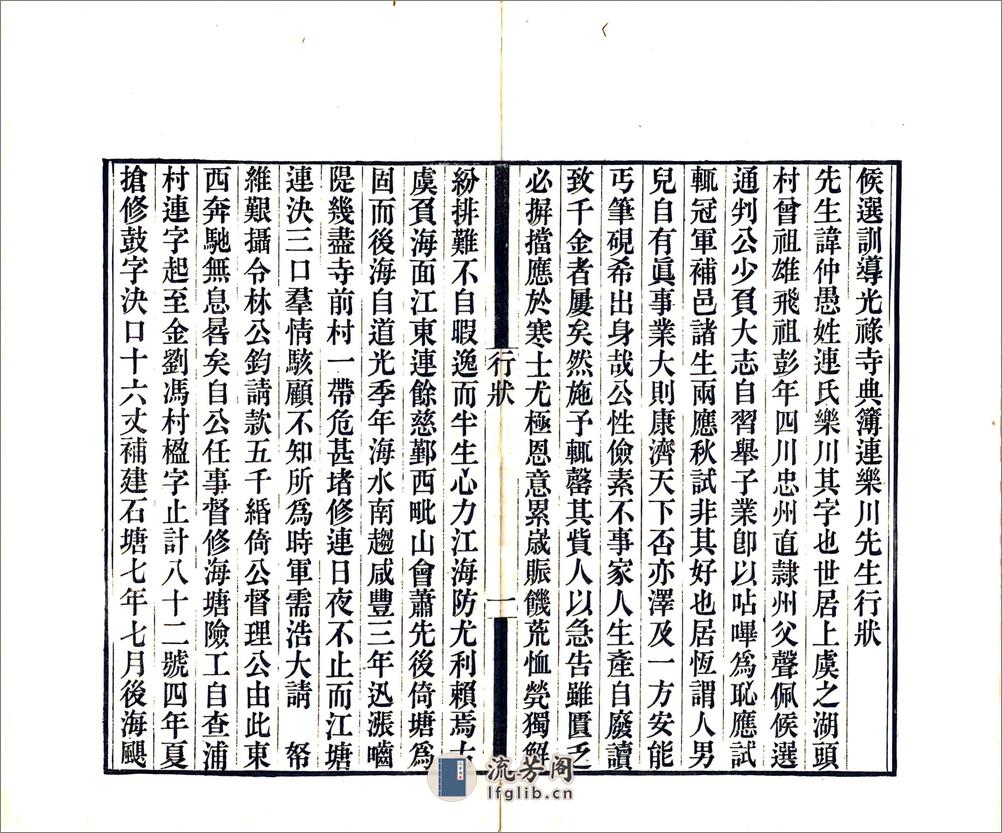 候選訓導光祿寺典簿連樂川先生行狀
先生諱仲愚姓連氏樂川其字也世居上虞之湖頭
村曾祖雄飛祖彭年四川忠州直隸州父聲佩候選
通判公少負大志自習舉子業卽以呫嗶爲恥應試
輒冠軍補邑諸生兩應秋試非其好也居恆謂人男
兒自有眞事業大則康濟天下否亦澤及一方安能
丐筆硯希出身哉公性儉素不事家人生產自廢讀
致千金者屢矣然施予輒罄其貲人以急告雖匱乏
必摒擋應於寒士尤極恩意累歲賑饑荒恤煢獨解
行狀
一
紛排難不自暇逸而半生心力江海防尤利賴焉上
虞負海面江東連餘慈鄞西毗山會蕭先後倚塘爲
固而後海自道光季年海水南趨咸豐三年迅漲嚙
隄幾盡寺前村一帶危甚堵修連日夜不止而江塘
連決三口羣情駭顧不知所爲時軍需浩大請 帑
維艱攝令林公鈞請款五千緡倚公督理公由此東
西奔馳無息晷矣自公任事督修海塘險工自查浦
村連字起至金劉馮村楹字止計八十二號四年夏
搶修鼓字決口十六丈補建石塘七年七月後海颶
流芳阁
lfglib.cn